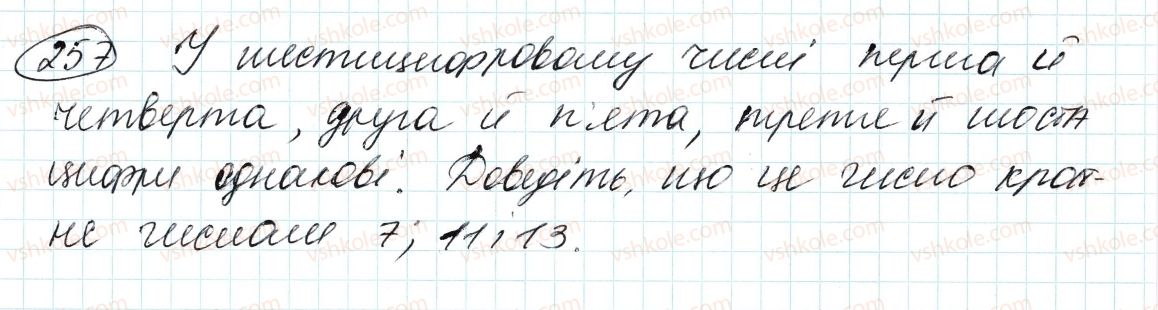 257 У шестицифровому числі перша й
четверта, друга й п'ята, третя й шоста
цифри однакові. Доведіть, що це число крат-
не числам 7; 11 і 13.